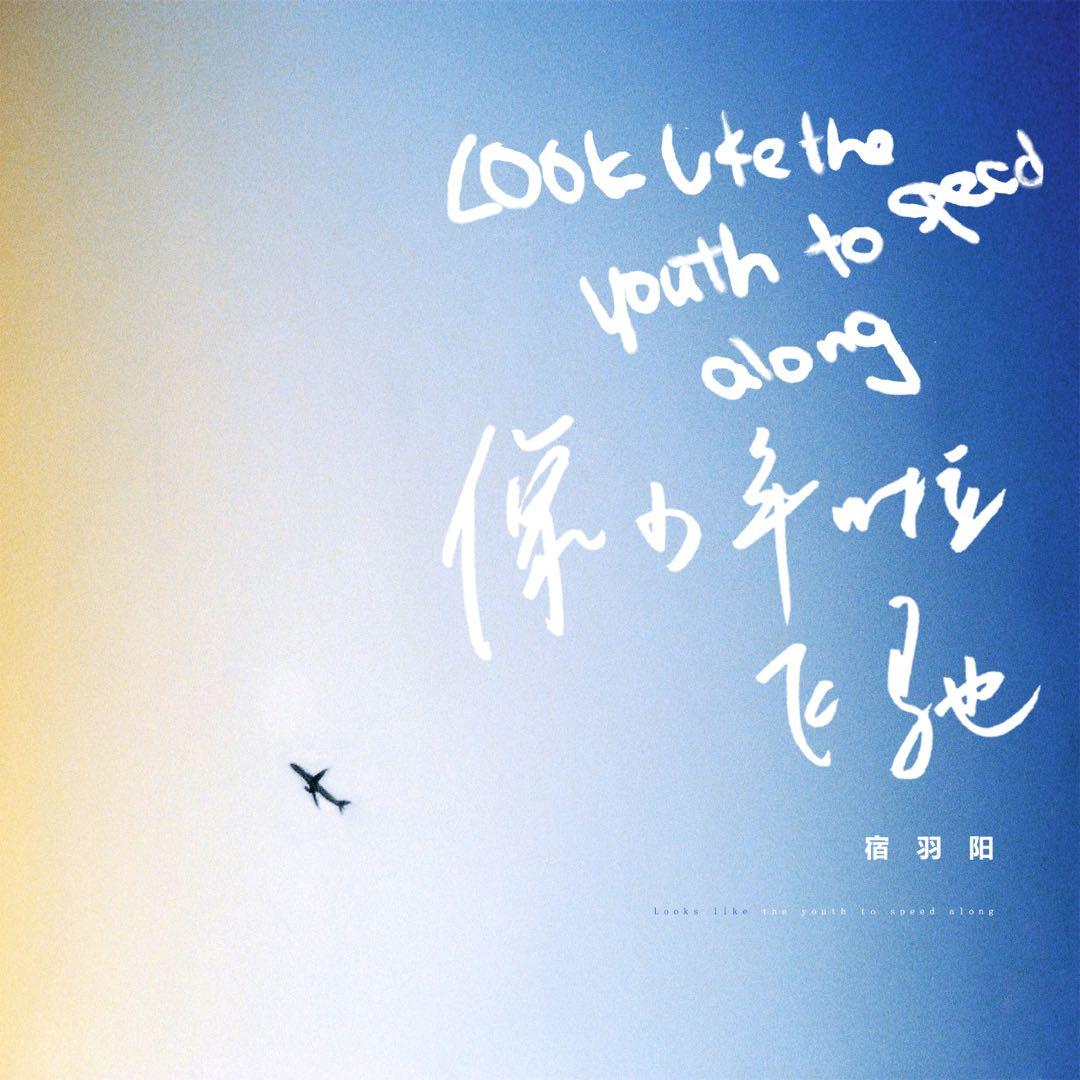 Look like the
youth to speed
along
像少年啦
飞驰
宿羽阳
Looks like the youth to speed along